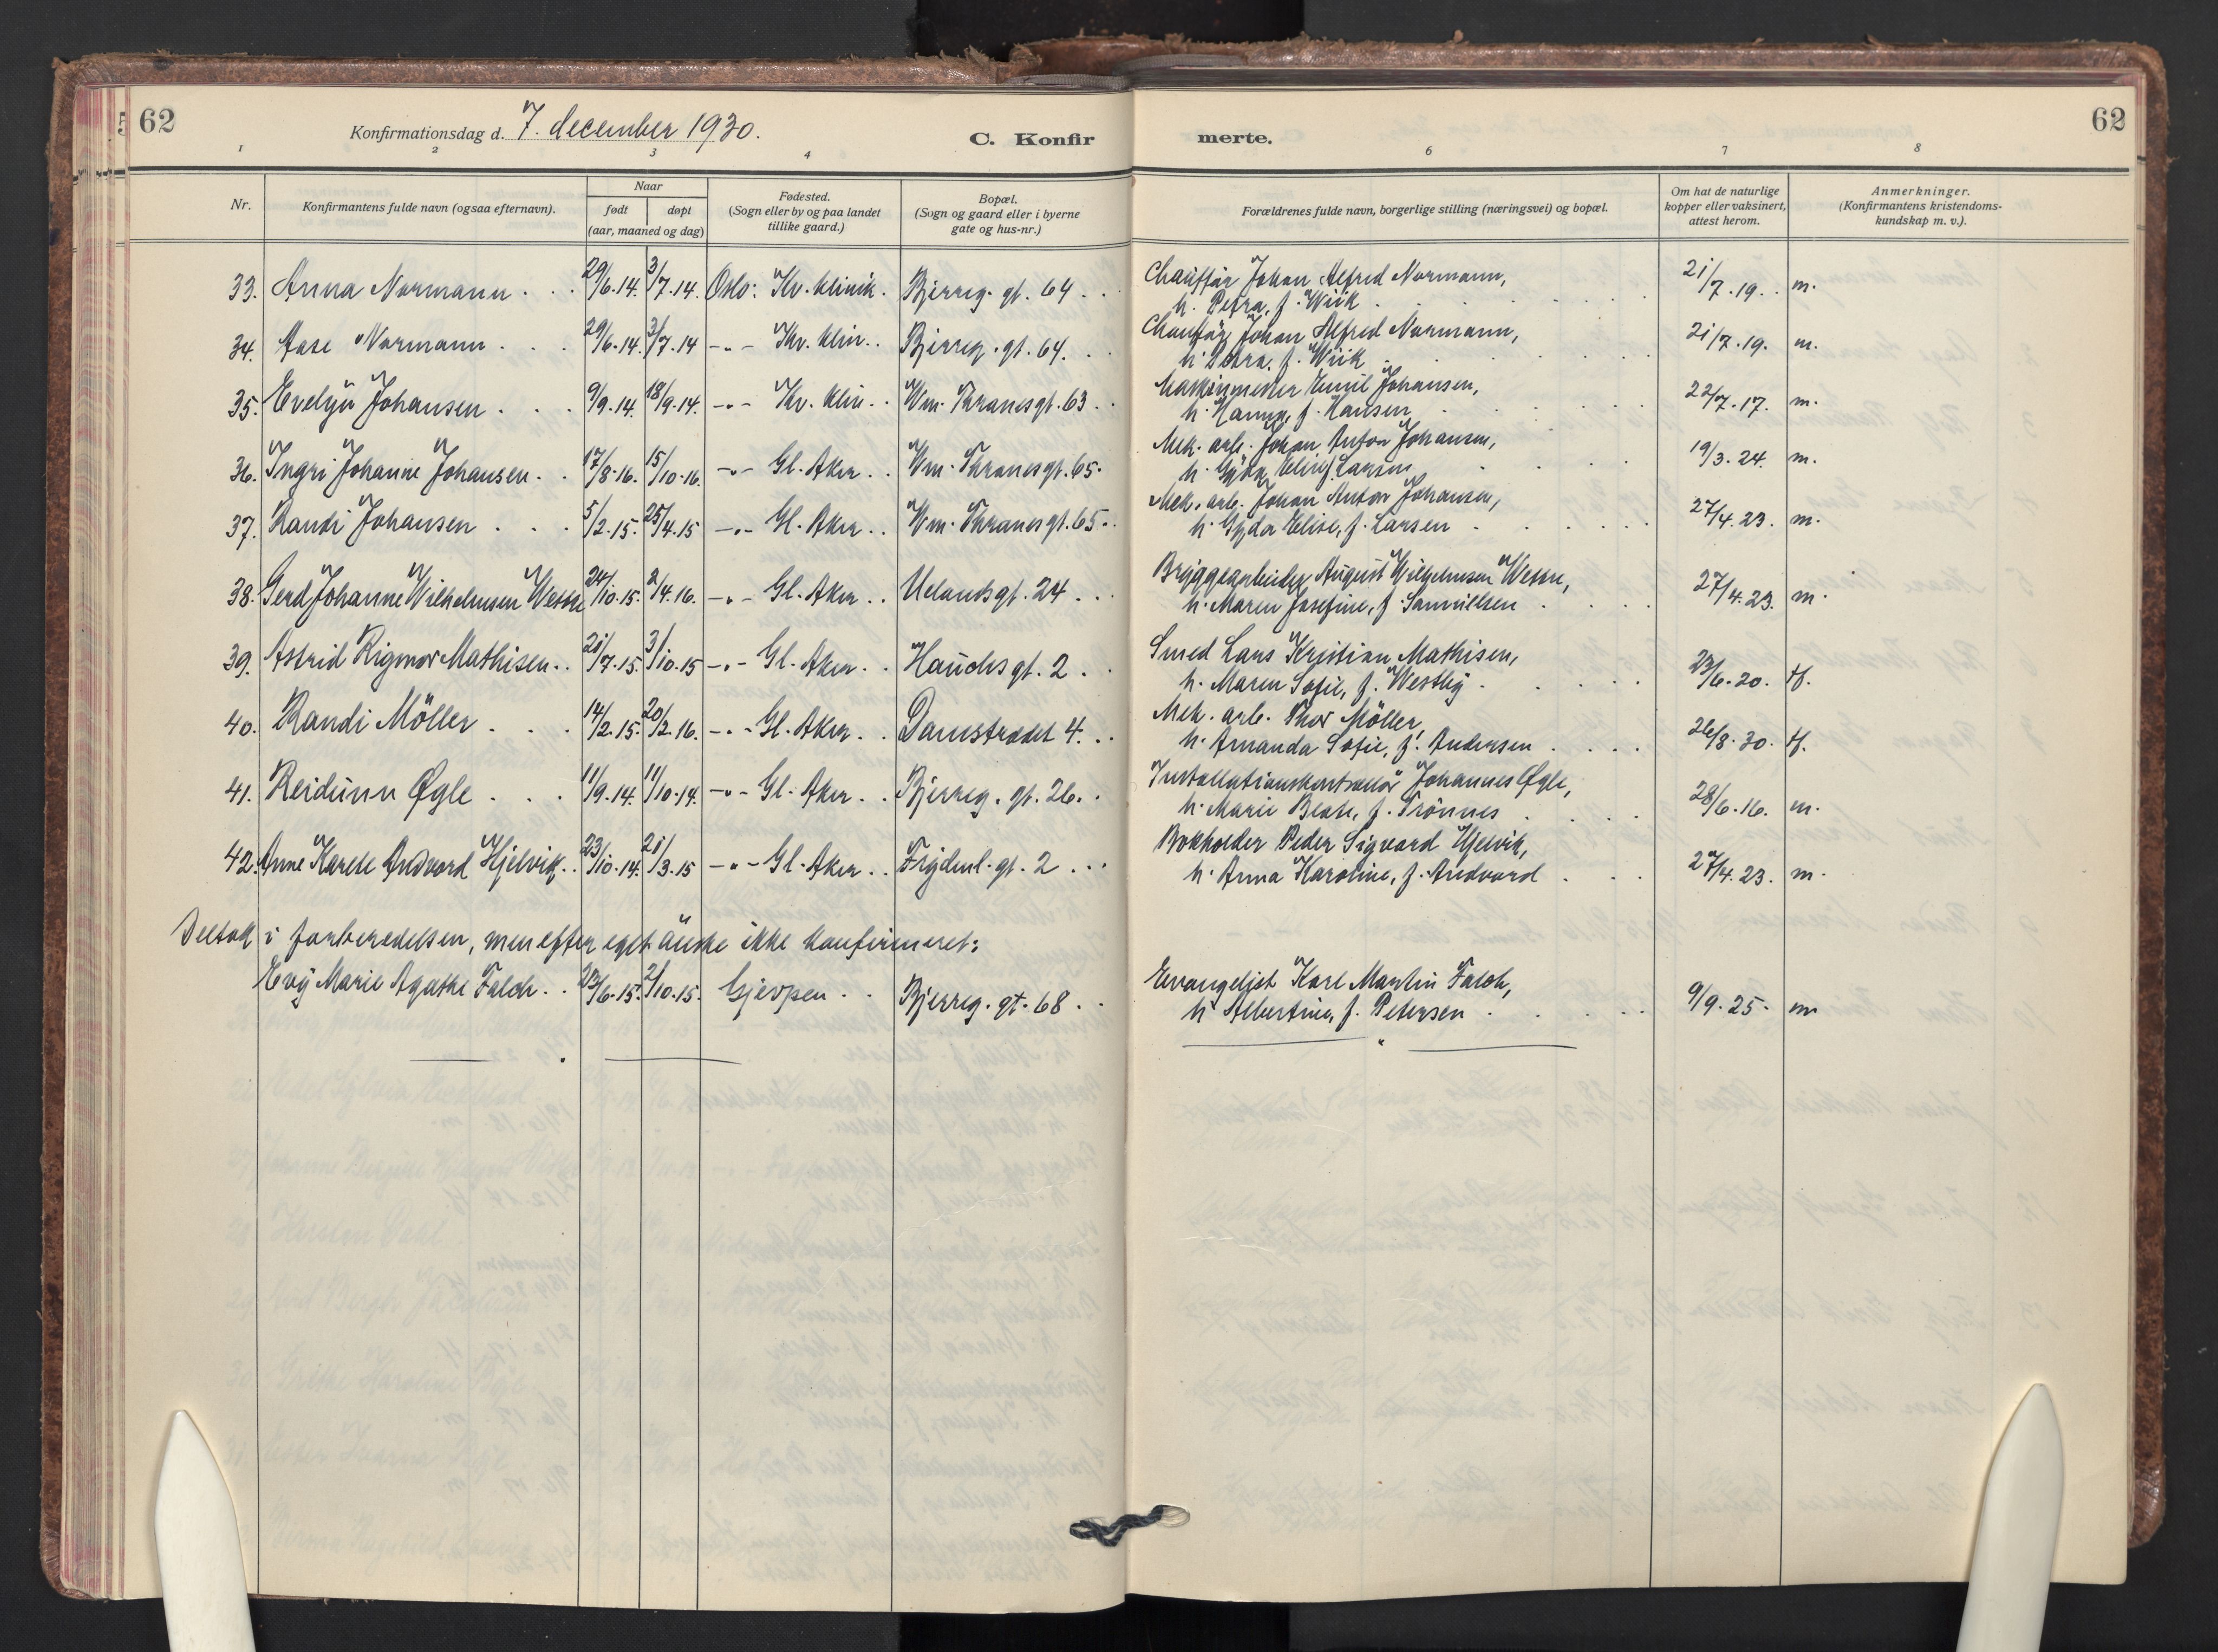 62
Konfirmationsdag d. 7. december 1930.
C. Konfir
merte.
62
1 2 3 4 6 7 8
Nr.
Konfirmantens fulde navn (ogsaa efternavn).
Naar
født døpt
(aar, maaned og dag)
Fødested.
(Sogn eller by og paa landet
tillike gaard.)
Bopæl.
(Sogn og gaard eller i byerne
gate og hus-nr.)
Forældrenes fulde navn, borgerlige stilling (næringsvei) og bopæl.
Om hat de naturlige
kopper eller vaksinert,
attest herom.
Anmerkninger.
(Konfirmantens kristendoms-
kundskap m. v.).
33. Anna Normann . . 29/6.14. 3/7.14. Oslo: Kv. klinik. Bjerreg. gt. 64 . . Chauffør Johan Alfred Normann, 21/7.19. . m.
h. Petra, f. Wiik
34. Aase Normann . . . 29/6.14. 3/7.14 -"- Kv. klin. . Bjerreg. gt. 64. . Chauffør Johan Alfred Normann, 21/7.19. m.
h. Petra, f. Wiik
35. Evelyn Johansen . . . 9/9.14. 18/9.14. -"- Kv. klin. . Wm. Thranesgt. 63 . . Maskinmester Emil Johansen, 22/7.17. m.
h. Hanna, f. Hansen
36. Ingri Johanne Johansen. . 17/8.16. 15/10.16. -"- Gl. Aker . . Wm. Thranesgt. 65. Mek. arb. Johan Anton Johansen, 19/3.24. m.
h. Gyda Elise, f. Larsen
37. Randi Johansen . . . 5/2.15. 25/4.15 -"- Gl. Aker . . Wm. Thranesgt. 65. . Mek. arb. Johan Anton Johansen, 27/4.23. m.
h. Gyda Elise, f. Larsen
38. Gerd Johanne Wilhelmsen Wessu 24/10.15. 2/4.16. -"- Gl. Aker . . Uelandsgt. 24 . . . Bryggearbeider August Wilhelmsen Wessu, 27/4.23. m.
h. Maren Josefine, f. Samuelsen
39. Astrid Rigmor Mathisen. . 21/7.15. 3/10.15 -"- Gl. Aker. . Hauchsgt. 2 . . Smed Lars Kristian Mathisen, 23/6.20. tf.
h. Maren Sofie, f. Westby
40. Randi Möller . . . 14/2.15. 20/2.16. -"- Gl. Aker. . Damstrædet 4. . . Mek. arb. Thor Möller, 26/8.30. tf.
h. Amanda Sofie, f. Andersen
41. Reidunn Øgle . . . 11/9.14. 11/10.14. -"- Gl. Aker . . Bjerreg. gt. 26. . Installationskontrollör Johannes Øgle, 28/6.16. m.
h. Marie Beate, f. Trönnes
42. Anne Karete Andvord Hjelvik. . 23/10.14. 21/3.15 -"- Gl. Aker . . Frydenl. gt. 2 . . . Bokholder Peder Sigvard Hjelvik, 27/4.23. m.
h. Anna Karoline, f. Andvord
Deltok i forberedelsen, men efter eget önske ikke konfirmeret:
Evy Marie Agathe Falch. . 23/6.15. 2/10.15. Gjerpen . . Bjerreg. gt. 68 . . Evangelist Karl Martin Falch, 9/9.25. m
h. Albertine, f. Petersen